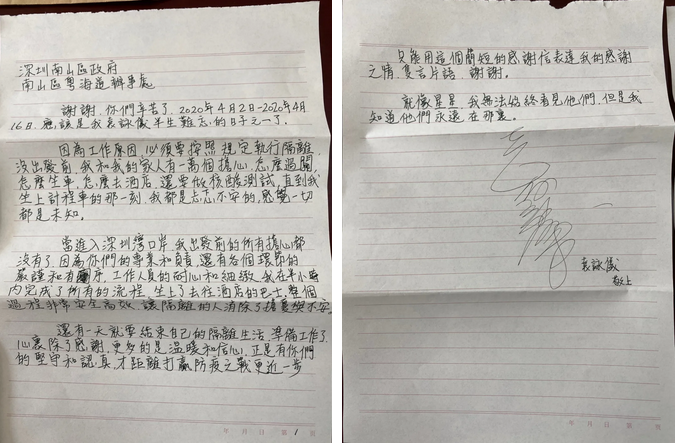 深圳南山區政府
南山區粵海道辦事處
謝謝,你們辛苦了,2020年4月2日-2020年4月
16日,應該是我袁詠儀半生難忘的日子之一了.
因為工作原因,必須要按照規定執行隔離,
沒出發前,我和我的家人有一萬個擔心,怎麼過關,
怎麼坐車,怎麼去酒店,還要做核酸測試,直到我
坐上計程車的那一刻,我都是忐忑不安的,感覺一切
都是未知。
當進入深圳灣口岸,我出發前的所有擔心都
沒有了,因為你們的專業和負責,還有各個環節的
嚴謹和有序,工作人員的耐心和細緻,我在半小時
內完成了所有的流程,坐上了去往酒店的巴士,整個
過程非常安全高效,讓隔離的人消除了擔憂與不安。
還有一天就要結束自己的隔離生活,準備工作了,
心裏除了感謝,更多的是溫暖和信心,正是有你們
的堅守和認真,才距離打贏防疫之戰更近一步
年 月 日 第 1 頁
只能用這個簡短的感謝信表達我的感謝
之情,隻言片語,謝謝。
就像星星,我無法始終看見他們,但是我
知道他們永遠在那裏。
袁詠儀
敬上
年 月 日 第 頁